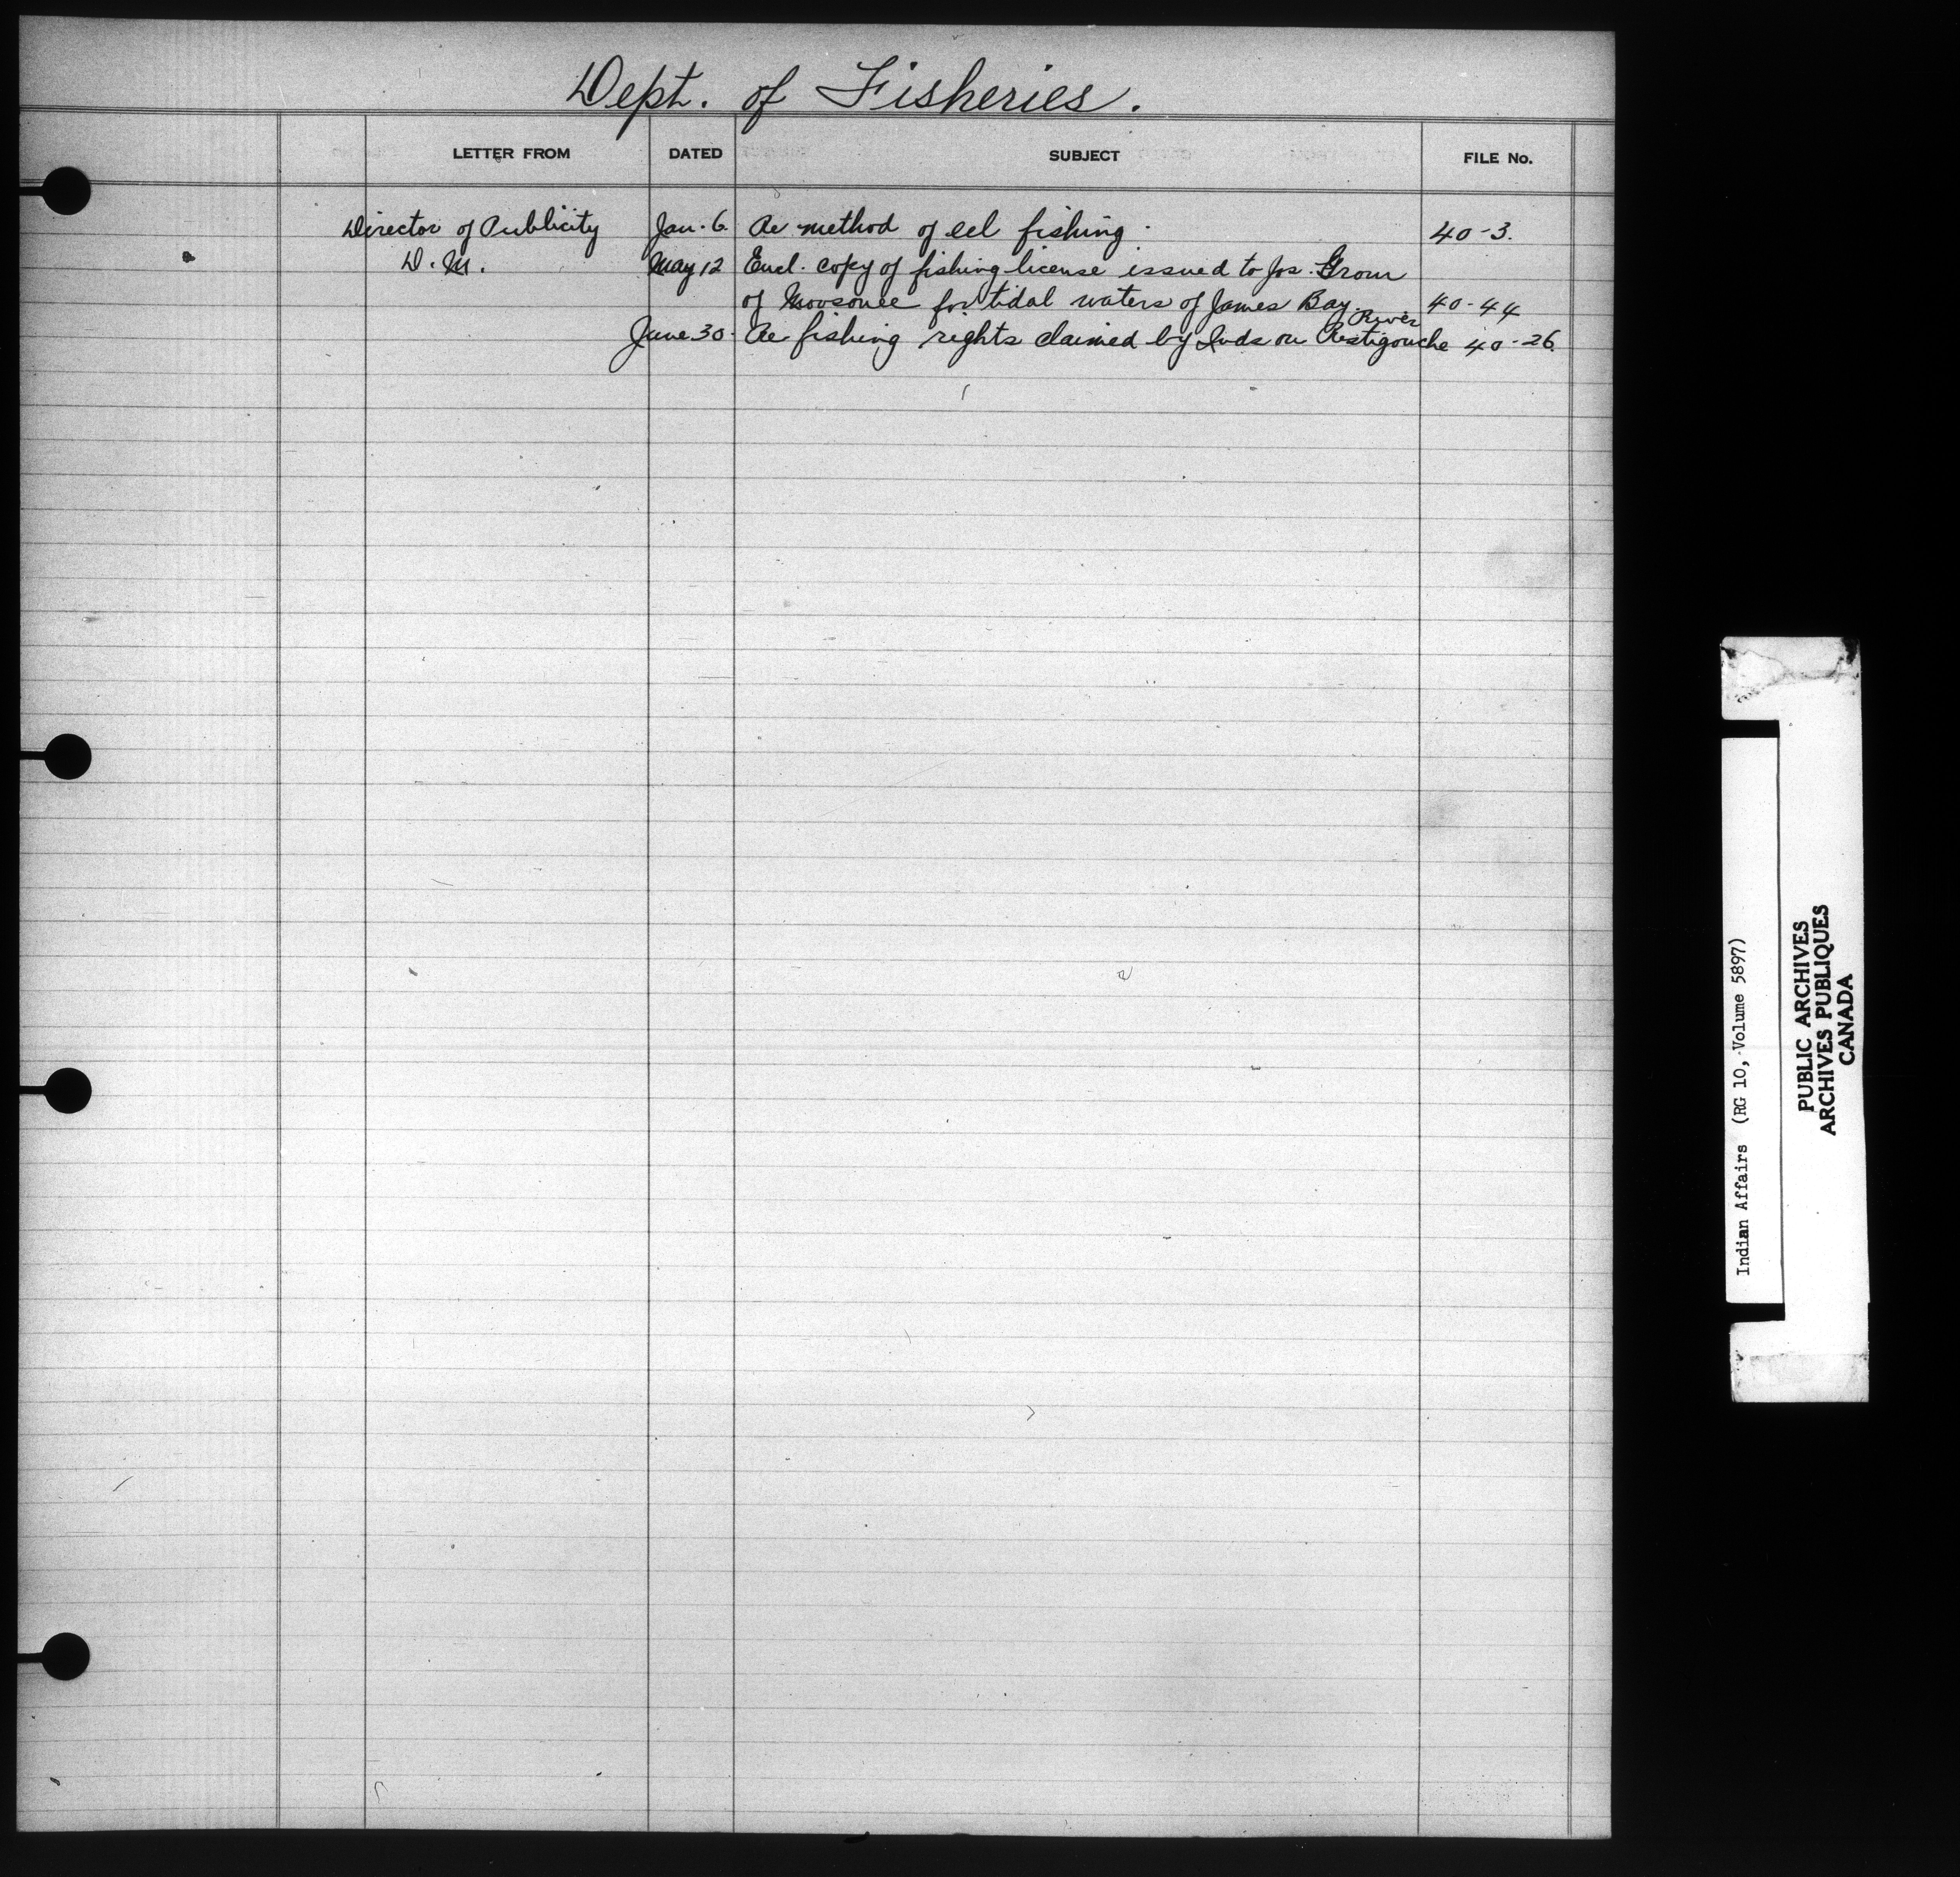 Dept. of Fisheries.
LETTER FROM DATED SUBJECT FILE No.
Director of Publicity Jan. 6. Re method of eel fishing. 40-3.
D. M. May 12 Encl. copy of fishing license issued to Jos.
of Moosonee for tidal waters of James Bay. 40-44
River
June 30. Re fishing rights claimed by Inds on Restigouche 40-26.
Indian Affairs (RG 10, Volume 5897)
PUBLIC ARCHIVES
ARCHIVES PUBLIQUES
CANADA